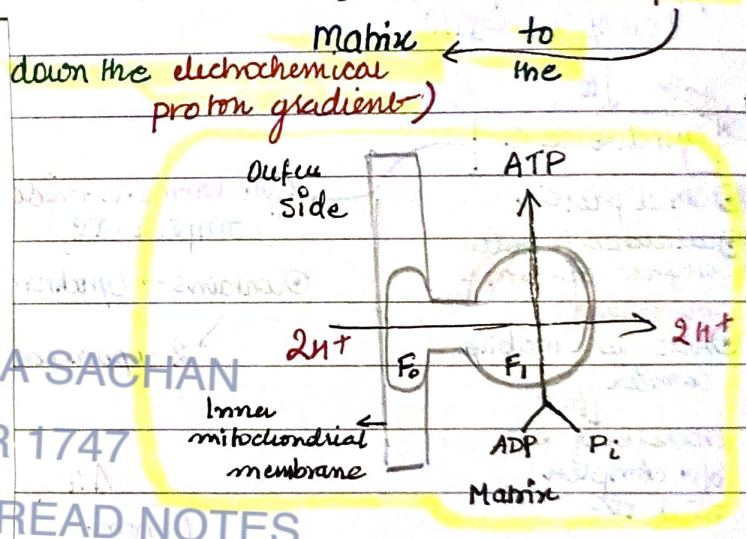 matrix ← to
the
down the electrochemical
proton gradient)
Outer
side
ATP
2H+
2H+
F₀
F₁
A SACHAN
Inner
mitochondrial
membrane
R 1747
ADP
Pi
Matrix
READ NOTES